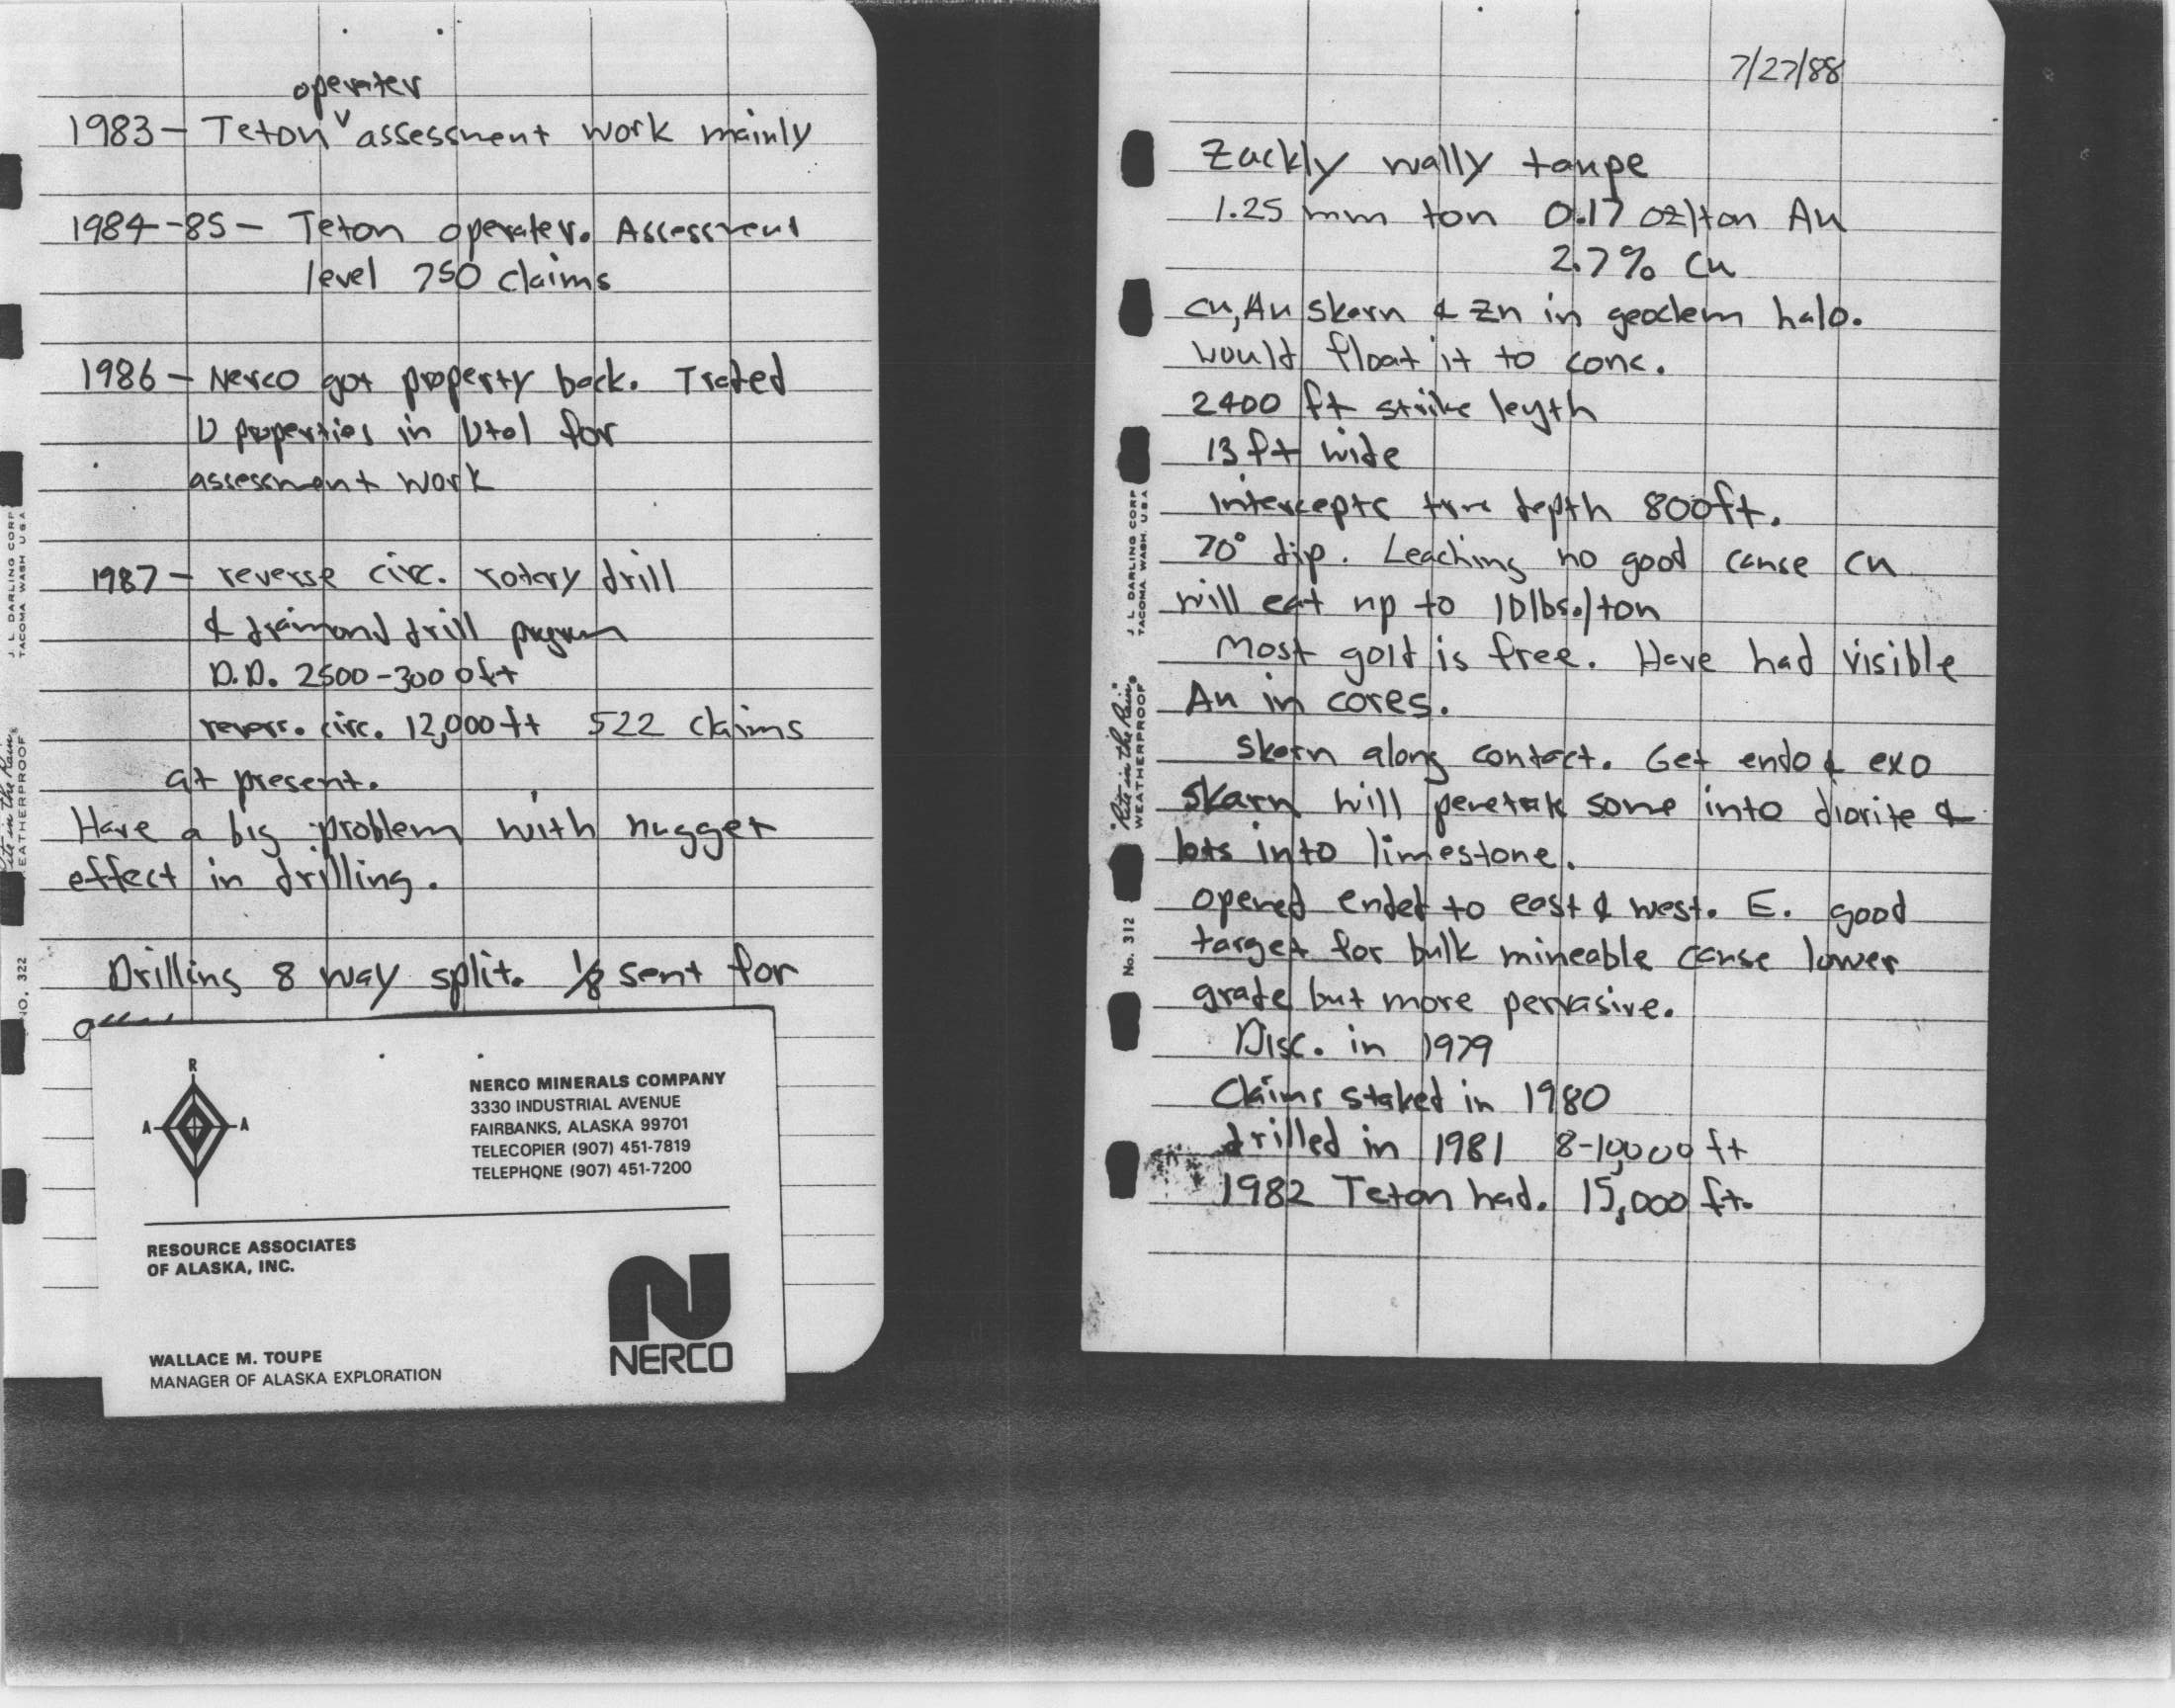 operater
1983 - Teton ˅ assessment work mainly
1984-85 - Teton operater. Assessment
level 750 claims
1986 - Nerco got property back. Traded
U properties in Utal for
assessment work
1987 - reverse circ. rotary drill
& diamond drill program
D.D. 2500-3000ft
revers. circ. 12,000ft 522 claims
at present.
Have a big problem with nugget
effect in drilling.
Drilling 8 way split. 1/8 sent for
J. L. DARLING CORP
TACOMA WASH USA
NO. 322
R
A A
NERCO MINERALS COMPANY
3330 INDUSTRIAL AVENUE
FAIRBANKS, ALASKA 99701
TELECOPIER (907) 451-7819
TELEPHONE (907) 451-7200
RESOURCE ASSOCIATES
OF ALASKA, INC.
NERCO
WALLACE M. TOUPE
MANAGER OF ALASKA EXPLORATION
7/27/88
Zackly wally taupe
1.25 mm ton 0.17 oz/ton Au
2.7% Cu
Cu, Au skarn & Zn in geochem halo.
would float it to conc.
2400 ft strike leyth
13 ft wide
Intercepts true depth 800ft.
70° dip. Leaching no good cause Cu
will eat up to 10lbs./ton
Most gold is free. Have had visible
Au in cores.
Skarn along contact. Get endo & exo
skarn will penetrate some into diorite &
lots into limestone.
opened ended to east & west. E. good
target for bulk mineable cause lower
grade but more pervasive.
Disc. in 1979
Claims staked in 1980
drilled in 1981 8-10,000 ft
1982 Teton had. 15,000 ft.
J. L. DARLING CORP
TACOMA WASH. U.S.A
"Rite in the Rain"
WEATHERPROOF
No. 312